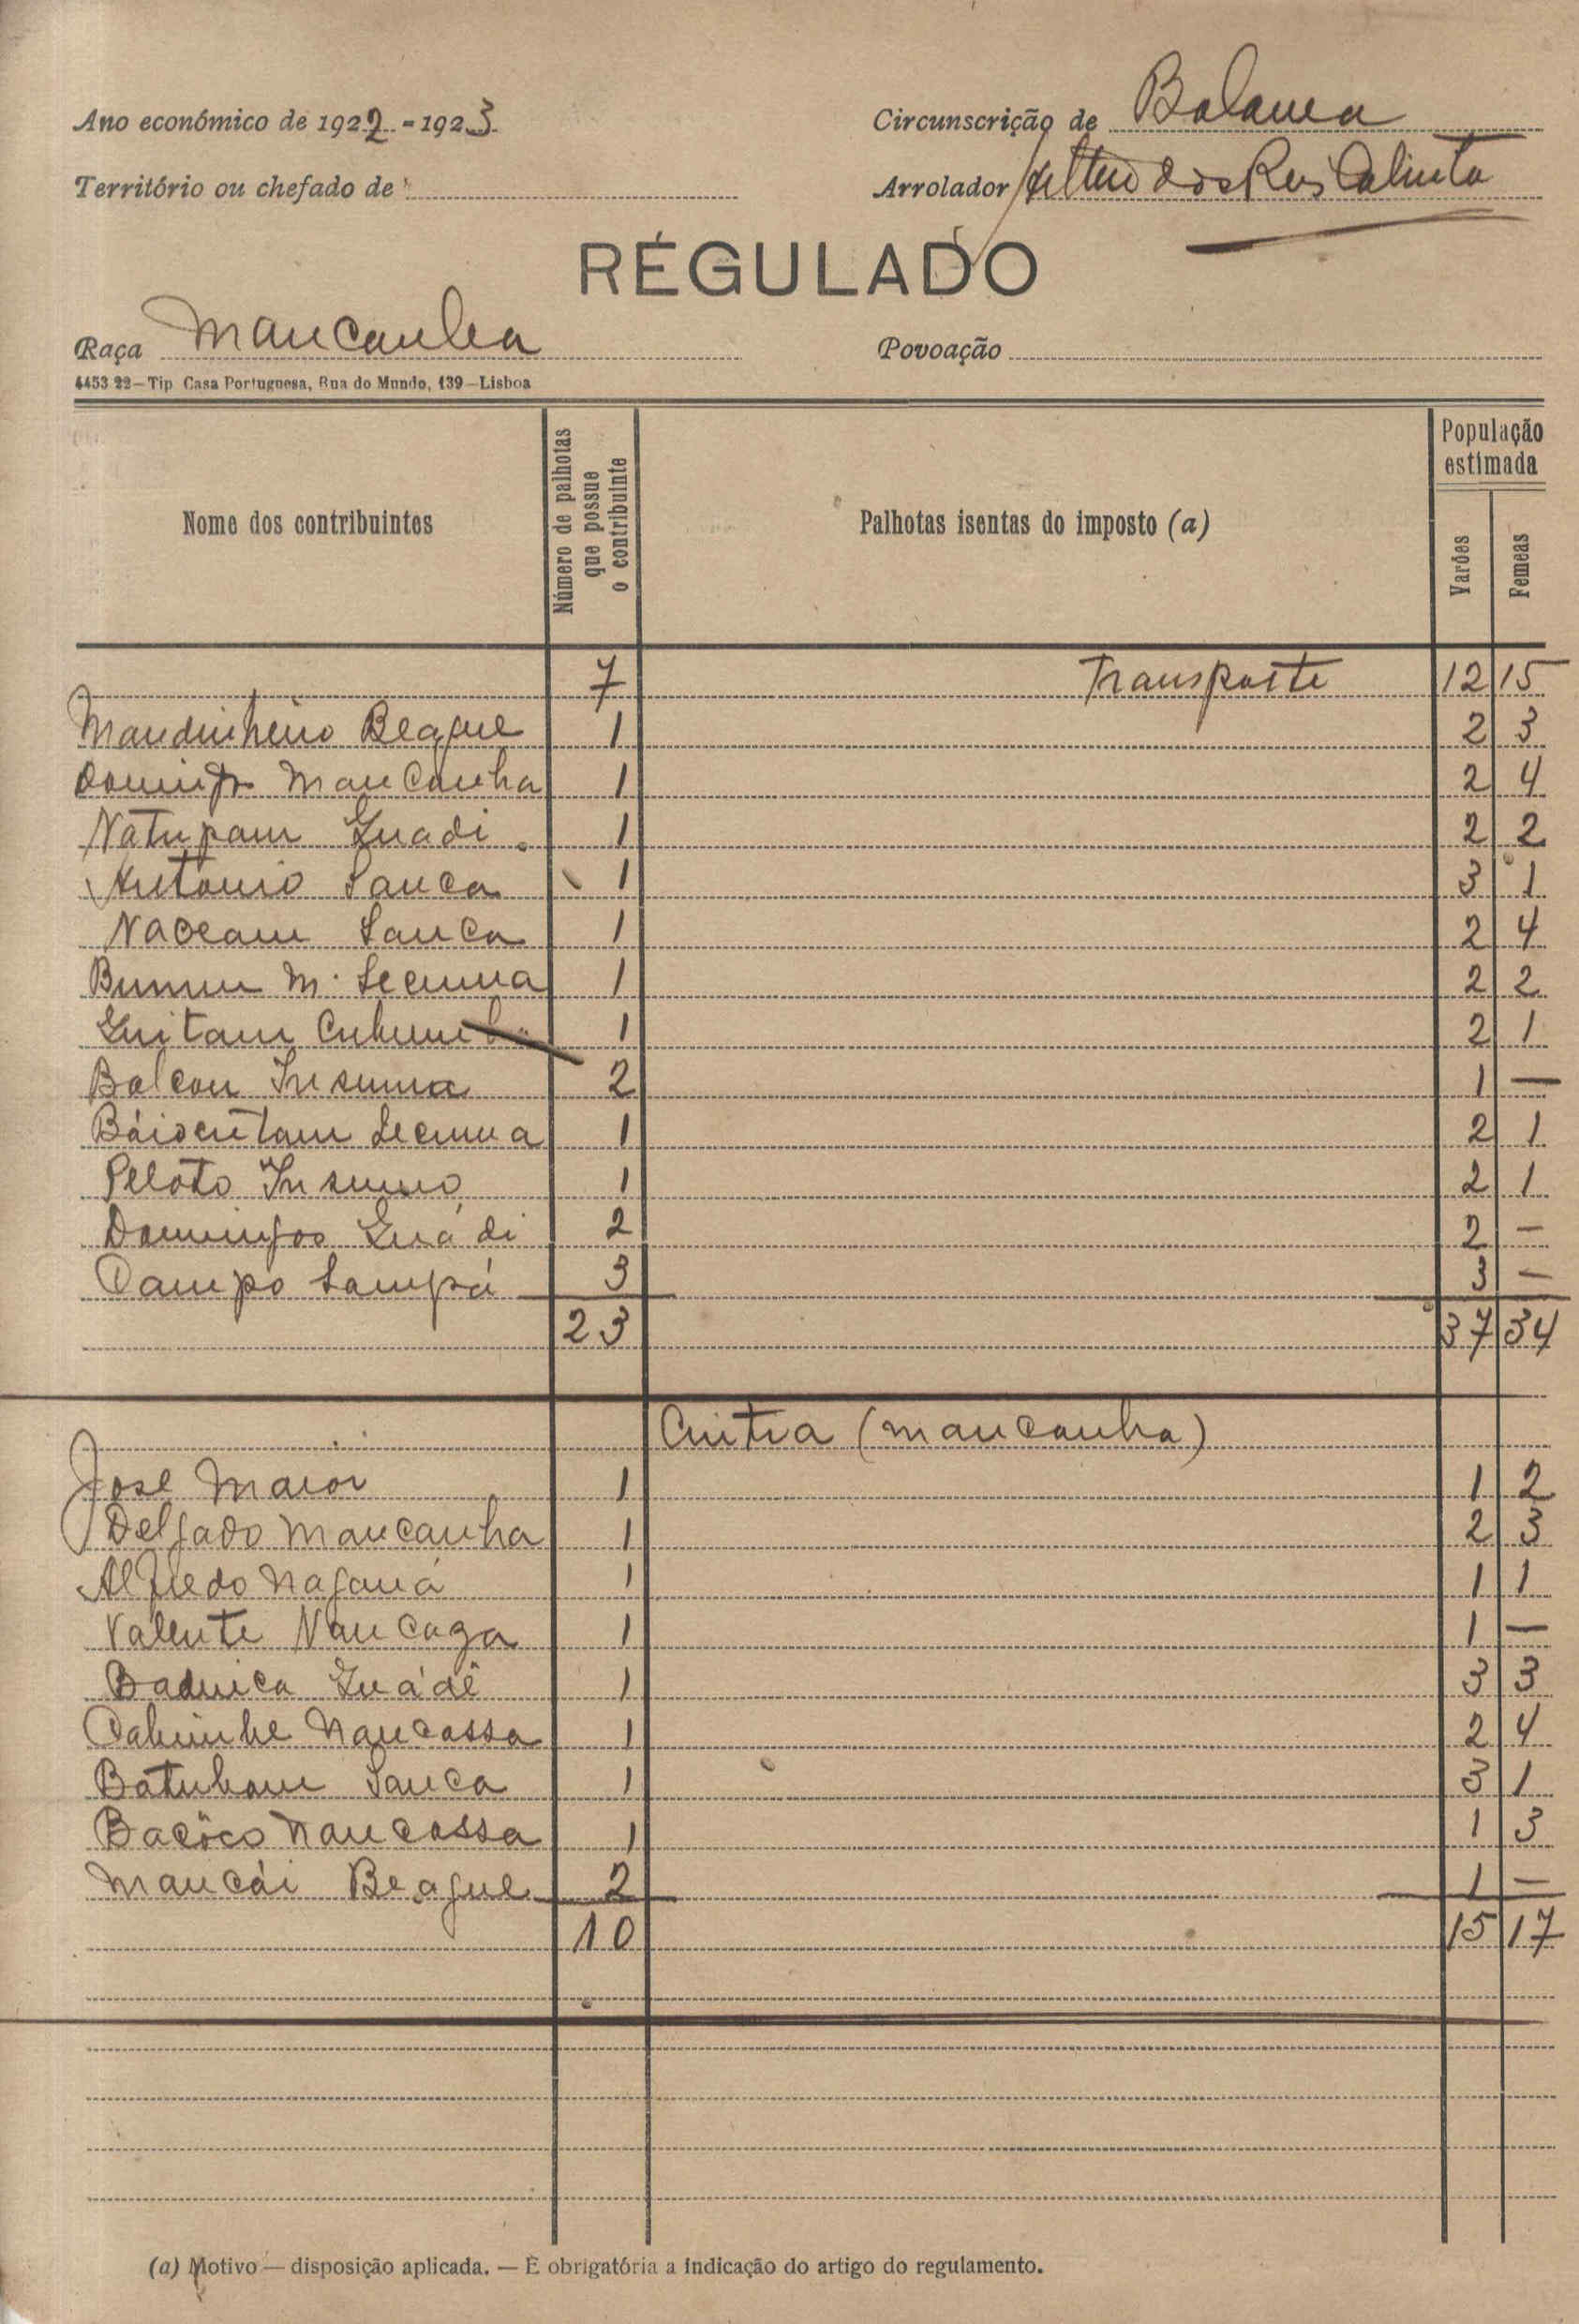 Ano económico de 1922-1923
Circunscrição de Bolama
Território ou chefado de
Arrolador dos Reis
RÉGULADO
Raça Mancanha
Povoação
4453 22—Tip Casa Portuguesa, Rua do Mundo, 139—Lisboa
Nome dos contribuintes
Número de palhotas que possue o contribuinte
Palhotas isentas do imposto (a)
População estimada
Varões
Femeas
7 Transporte 12 15
Mandinheiro Beague 1 2 3
Domingos Mancanha 1 2 4
Natupam Guadi 1 2 2
António Sanca 1 3 1
Nacam Sanca 1 2 4
M. Secuma 1 2 2
Guitam 1 2 1
Balcan Insuma 2 1 —
Secuma 1 2 1
Peloto Insumo 1 2 1
Domingos Guádi 2 2 —
Campo Sampá 3 3 —
23 37 34
Cuitia (Mancanha)
José Maior 1 1 2
Delgado Mancanha 1 2 3
Alfredo Naganá 1 1 1
Valente Nancaza 1 1 —
Baduica Guádê 1 3 3
Nancassa 1 2 4
Batubam Sanca 1 3 1
Bacôco Nancassa 1 1 3
Mancái Beague 2 1 —
10 15 17
(a) Motivo — disposição aplicada. — É obrigatória a indicação do artigo do regulamento.